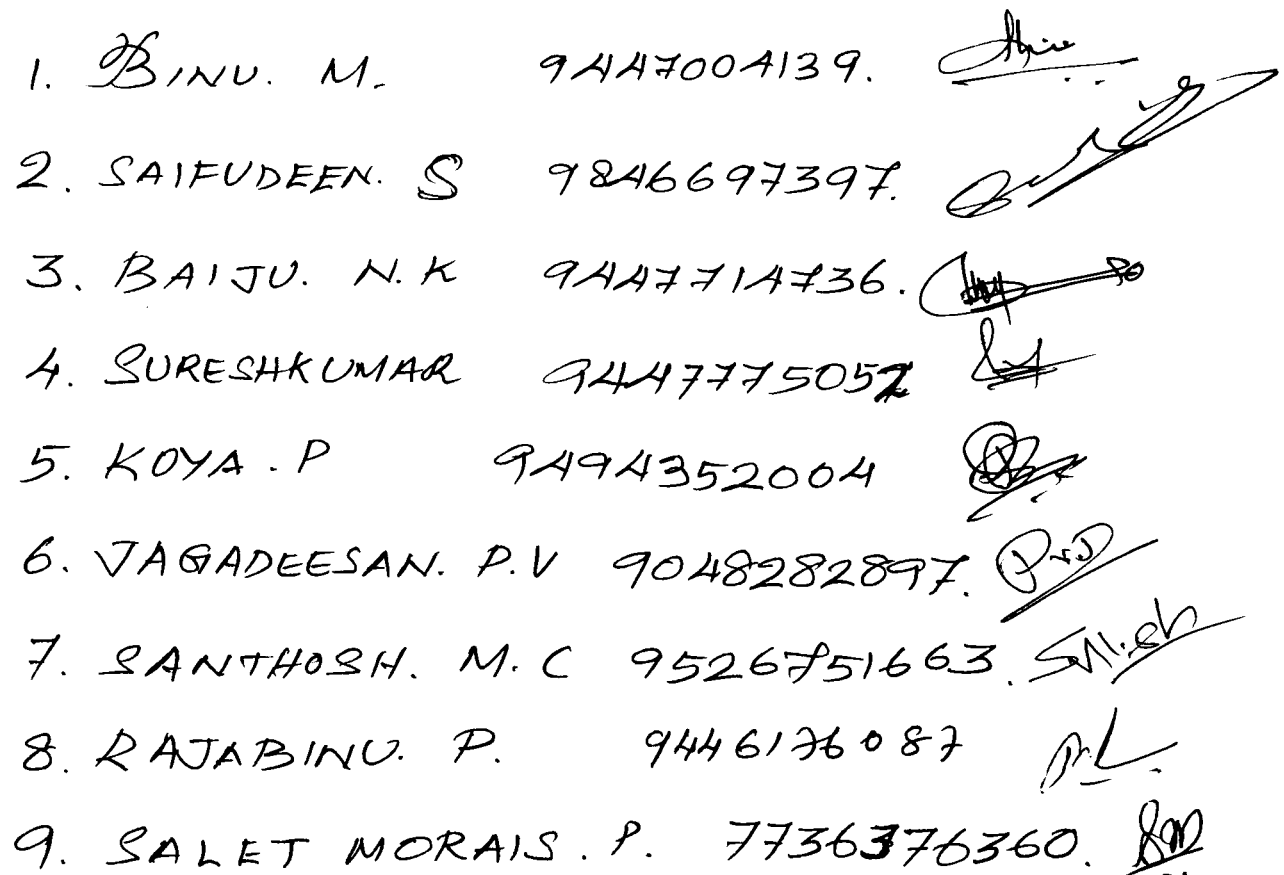 1. BINU. M. 9447004139.
2. SAIFUDEEN. S 9846697397.
3. BAIJU. N.K 9447714736.
4. SURESHKUMAR 9447775052
5. KOYA. P 9494352004
6. JAGADEESAN. P.V 9048282897.
7. SANTHOSH. M.C 9526751663.
8. RAJABINU. P. 9446176087
9. SALET MORAIS. P. 7736376360.